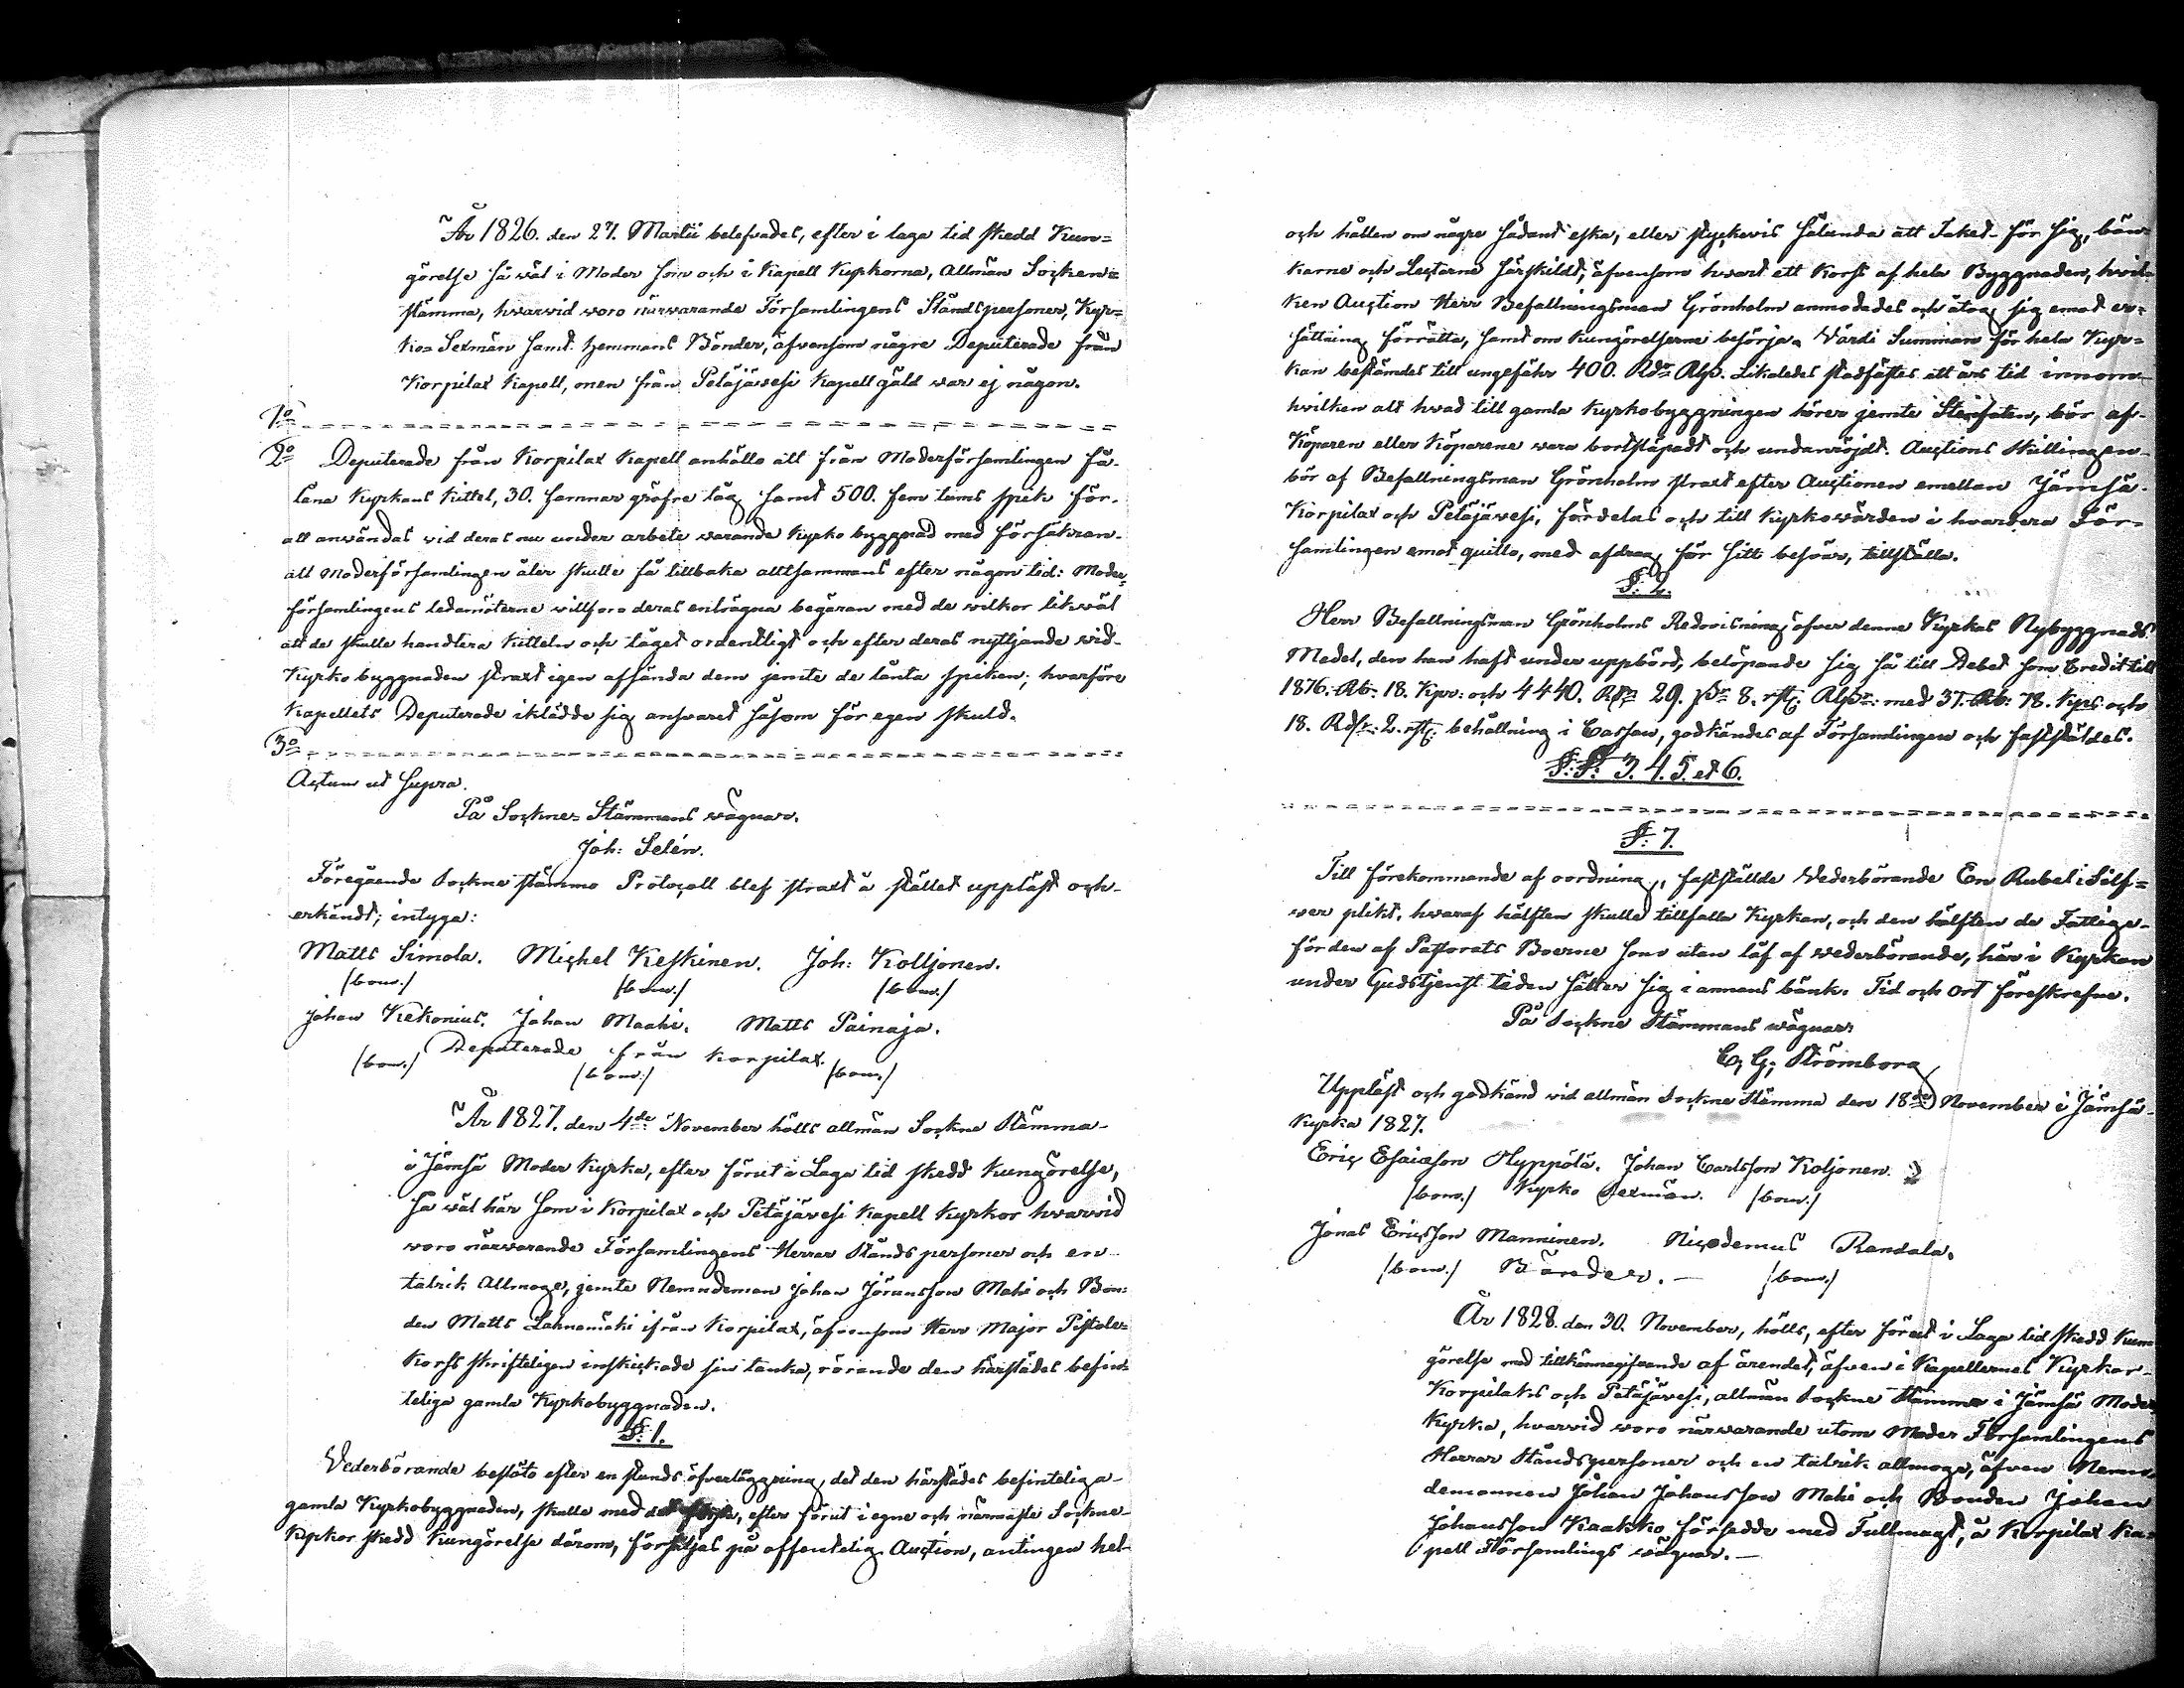 År 1826. den 27. Martii belefvades, efter i laga tid skedd Kun=
görelse så wäl i Moder som och i Kapell Kyrkorna, allmän Socken=
stämma, hwarvid woro närwarande Församlingens Ståndspersoner, Kyr=
ko= Sexmän samt hemmans Bönder, äfvensom någre Deputerade från
Korpilax Kapell, men från Petäjävesi Kapellgäld war ej någon.
1o
2o Deputerade från Korpilax Kapell anhölla att från Moderförsamlingen få
låna Kyrkans Kittel, 30. famnar gröfre tåg samt 500. fem tums spik för
att användas vid deras nu under arbete varande Kyrko byggnad med försäkran
att Moderförsamlingen åter skulle få tillbaka alltsammans efter någon tid: Moder=
församlingens ledamöterne villforo deras enträgna begäran med de wilkor likwäl
att de skulle handtera Kitteln och tåget ordentligt och efter deras nyttjande wid
Kyrko byggnaden straxt igen affända dem jemte de lånta spiken; hvarföre
Kapellets Deputerade iklädde sig ansvaret såsom för egen skuld.
3o
Actum ut supra.
På Sockne= Stämmans wägnar.
Joh: Selén.
Föregående Sockne stämmo Protocoll blef straxt å stället uppläst och
erkändt; intyga:
Matts Simola. Michel Keskinen. Joh: Kolljonen.
/bom./ /bom./ /bom./
Johan Kekonius. Johan Maahi. Matts Painaja.
Deputerade från Korpilax.
/bom./ /bom./ /bom./
År 1827. den 4de November hölls allmän Sockne Stämma
i Jämsä Moder Kyrka, efter förut i Laga tid skedd kungörelse,
så wäl här som i Korpilax och Petäjävesi Kapell Kyrkor hwarvid
woro närwarande Församlingens Herrar Stånds personer och en
talrik Allmoge, jemte Nemndeman Johan Jöransson Mahi och Bon=
den Matts Lahnamäki ifrån Korpilax, äfvensom Herr Major Pistole=
Korfs skrifteligen inskickade sin tanka, rörande den härstädes befint=
teliga gamla Kyrkobyggnaden.
§: 1.
Vederbörande beslöto efter en stunds öfverläggning, det den härstädes befinteliga
gamla Kyrkobyggnaden, skulle med det första, efter förut i egne och närmaste Sockne
Kyrkor skedd kungörelse därom, försäljas på offentelig Auction, antingen hel
och hållen om någre sådant eska, eller styckevis sålunda att Taket för sig, bän=
karne och Lectarne särskildt, äfvensom hvart ett Kors af hela Byggnaden, hvil=
ken Auction Herr Befallningsman Grönholm anmodades och åtog sig emot er=
sättning förrätta, samt om kungörelserne besörja. Värdi Summan för hela Kyr=
kan bestämdes till ungefähr 400. Rdr Rgs. Likaledes stadfästes ett års tid innom
hvilken allt hvad till gamla Kyrkobyggningen hörer jemte Stenfoten, bör af
Köparen eller Köparene vara bortsläpadt och undanröjdt. Auctions Skillingen
bör af Befallningsman Grönholm straxt efter Auctionen emellan Jämsä
Korpilax och Petäjävesi, fördelas och till Kyrkowärden i hvardera För=
samlingen emot quitto, med afdrag för sitt besvär, tillställa.
§: 2.
Herr Befallningsman Grönholms Redovisning öfver denne Kyrkas Nybyggnads
Medel, den han haft under uppbörd, belöpande sig så till Debet som Credit till
1876. Rb: 18. Kpr: och 4440. 29. 8. med 37. Rb: 78. Kps och
18. 2. behållning i Cassan, godkändes af Församlingen och fastställdes.
§:§: 3. 4. 5. et 6.
§: 7.
Till förekommande af oordning, fastställde Vederbörande En Rubel i Silf=
wer plikt, hvaraf hälften skulle tillfalla Kyrkan, och den hälften de Fattige
för den af Pastorats Boerne som utan låf af wederbörande, här i Kyrkan
under Gudstjenst tiden sätter sig i annans bänk. Tid och Ort föreskrefne.
På Sockne Stämmans wägnar:
C. G: Strömborg
Uppläst och godkänd vid allmän Sockne Stämma den 18de November i Jämsä
Kyrka 1827.
Eric Esaiasson Hyppölä. Johan Carlsson Koljonen.
/bom./ Kyrko Sexmän. /bom./
Jonas Ericsson Manninen. Nicodemus Randala.
/bom./ Bönder. — /bom./
År 1828. den 30. November, hölls, efter förut i Laga tid skedd kun=
görelse med tillkännagifvande af ärendet, äfven i Kapellernes Kyrkor
Korpilaks och Petäjävesi, allmän Sockne Stämma i Jämsä Moder
Kyrka, hvarvid woro närvarande utom Moder Församlingens
Herrar Ståndspersoner och en talrik allmoge, äfven Nemn=
demannen Johan Johansson Mahi och Bonden Johan
Johansson Kaakko, försedde med Fullmagt, å Korpilax Ka=
pell Församlings wägnar. —